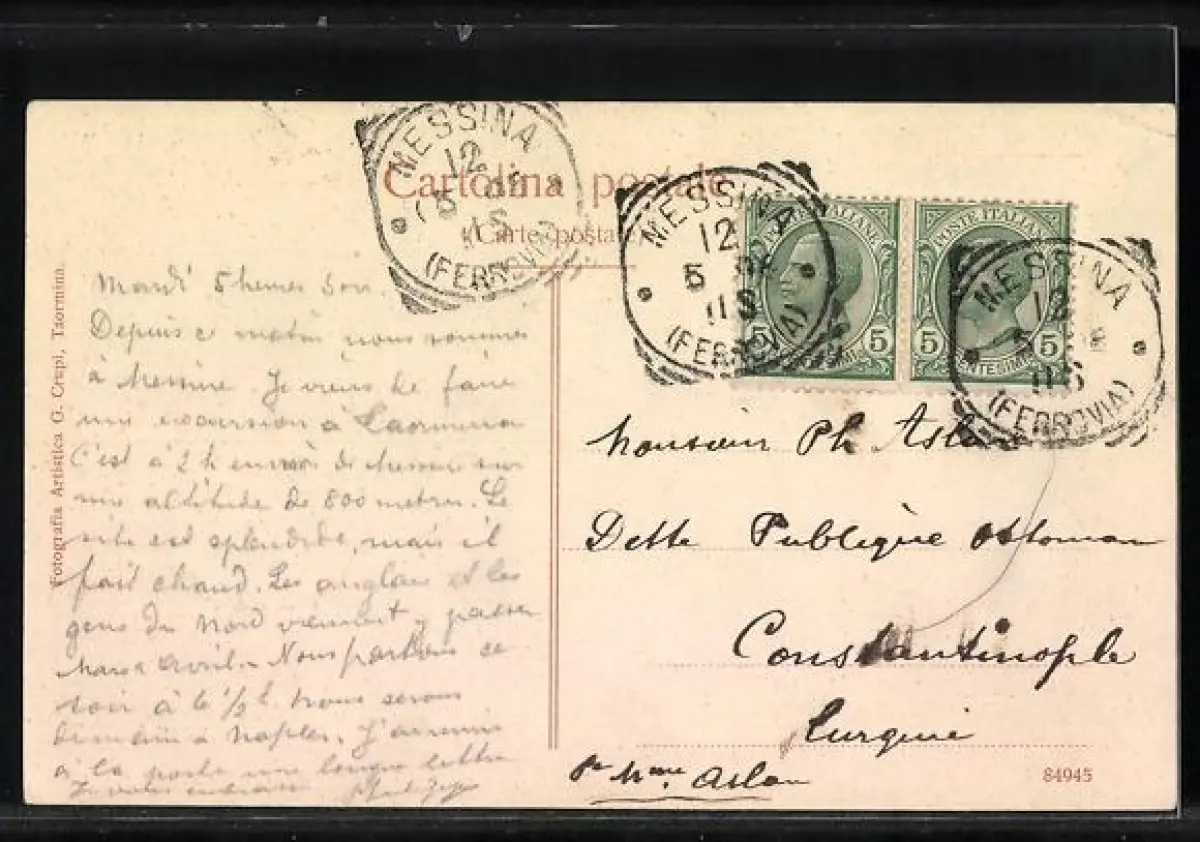 Cartolina postale
(Carte postale)
MESSINA
12
5
(FERROVIA)
MESSINA
12
5
(FERROVIA)
MESSINA
12
5
(FERROVIA)
POSTE ITALIANE
5 5
POSTE ITALIANE
5 CENTESIMI 5
Fotografia Artistica G. Crupi, Taormina.
Mardi 5 heures soir
Depuis ce matin nous sommes
à Messine. Je viens de faire
une excursion à Taormina
C'est à 2 h environ de Messine sur
une altitude de 800 metres. Le
site est splendide, mais il
fait chaud. Les anglais et les
gens du Nord viennent y passer
Mars & Avril. Nous partons ce
soir à 6 1/2 h. nous serons
demain à Naples. J'
à la poste une longue lettre
Je vous embrasse
Monsieur Ph Aslan
Dette Publique Ottoman
Constantinople
Turquie
Pr Mme. Aslan
84945